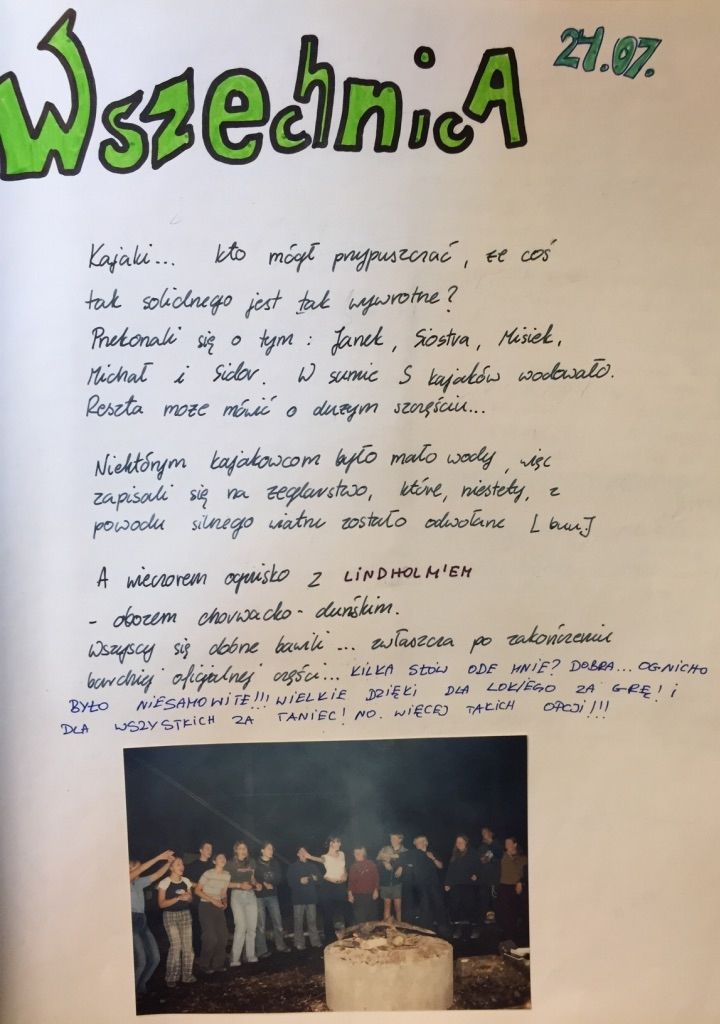 WszechnicA 24.07.
Kajaki... kto mógł przypuszczać, że coś
tak solidnego jest tak wywrotne?
Przekonali się o tym: Janek, Siostra, Misiek,
Michał i Sidor. W sumie 5 kajaków wodowało.
Reszta może mówić o dużym szczęściu...
Niektórym kajakowcom było mało wody, więc
zapisali się na żeglarstwo, które, niestety, z
powodu silnego wiatru zostało odwołane [buu]
A wieczorem ognisko z LINDHOLM'EM
- obozem chorwacko-duńskim.
Wszyscy się dobrze bawili... zwłaszcza po zakończeniu
bardziej oficjalnej części... KILKA SŁÓW ODE MNIE? DOBRA... OGNICHO
BYŁO NIESAMOWITE!!! WIELKIE DZIĘKI DLA LOKIEGO ZA GRĘ! i
DLA WSZYSTKICH ZA TANIEC! NO. WIĘCEJ TAKICH OPCJI!!!